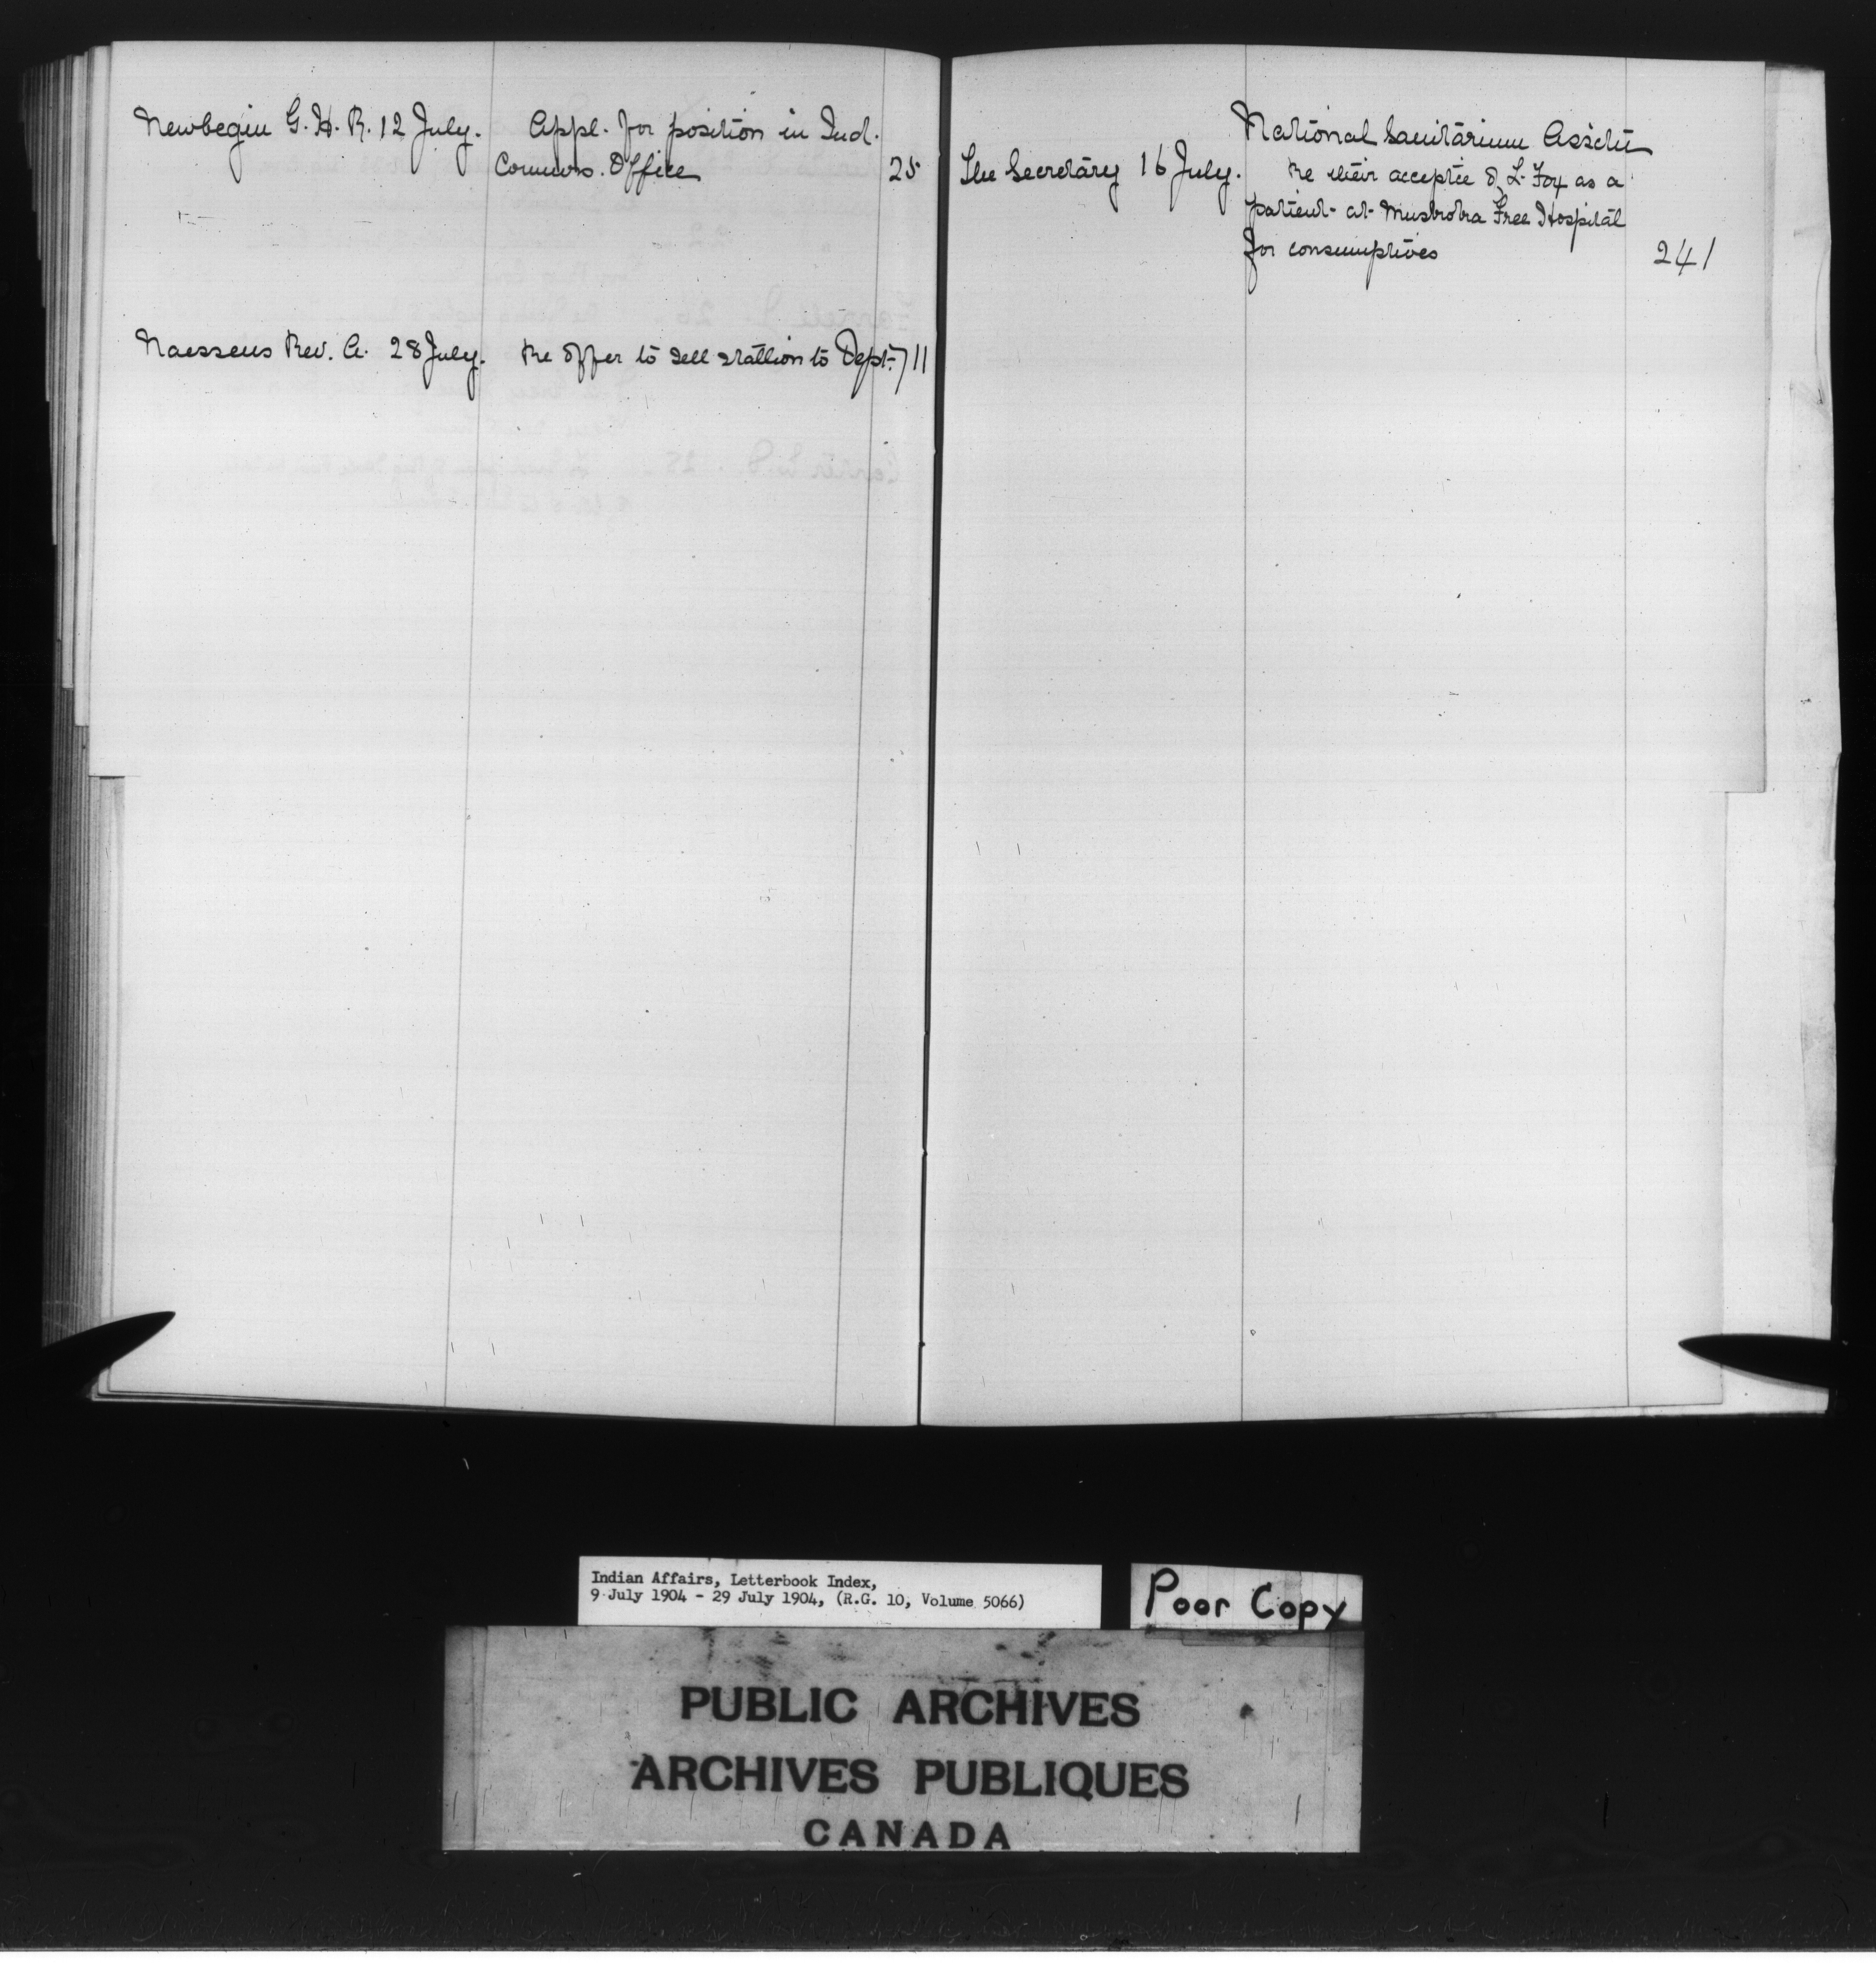 Newbegin G. H. R. 12 July. Appl. for position in Ind.
Commrs. Office 25
Naessens Rev. A. 28 July. Re offer to sell stallion to Dept. 711
National Sanitarium Assctn
The Secretary 16 July. Re their acceptce of L. Fox as a
patient at Muskoka Free Hospital
for consumptives 241
Indian Affairs, Letterbook Index,
9 July 1904 - 29 July 1904, (R.G. 10, Volume 5066)
Poor Copy
PUBLIC ARCHIVES
ARCHIVES PUBLIQUES
CANADA